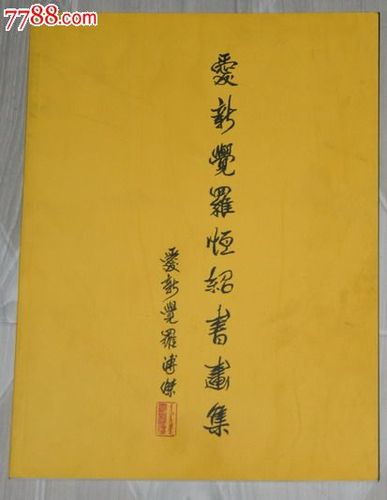 7788.com
愛新覺羅恒紹書畫集
愛新覺羅溥傑